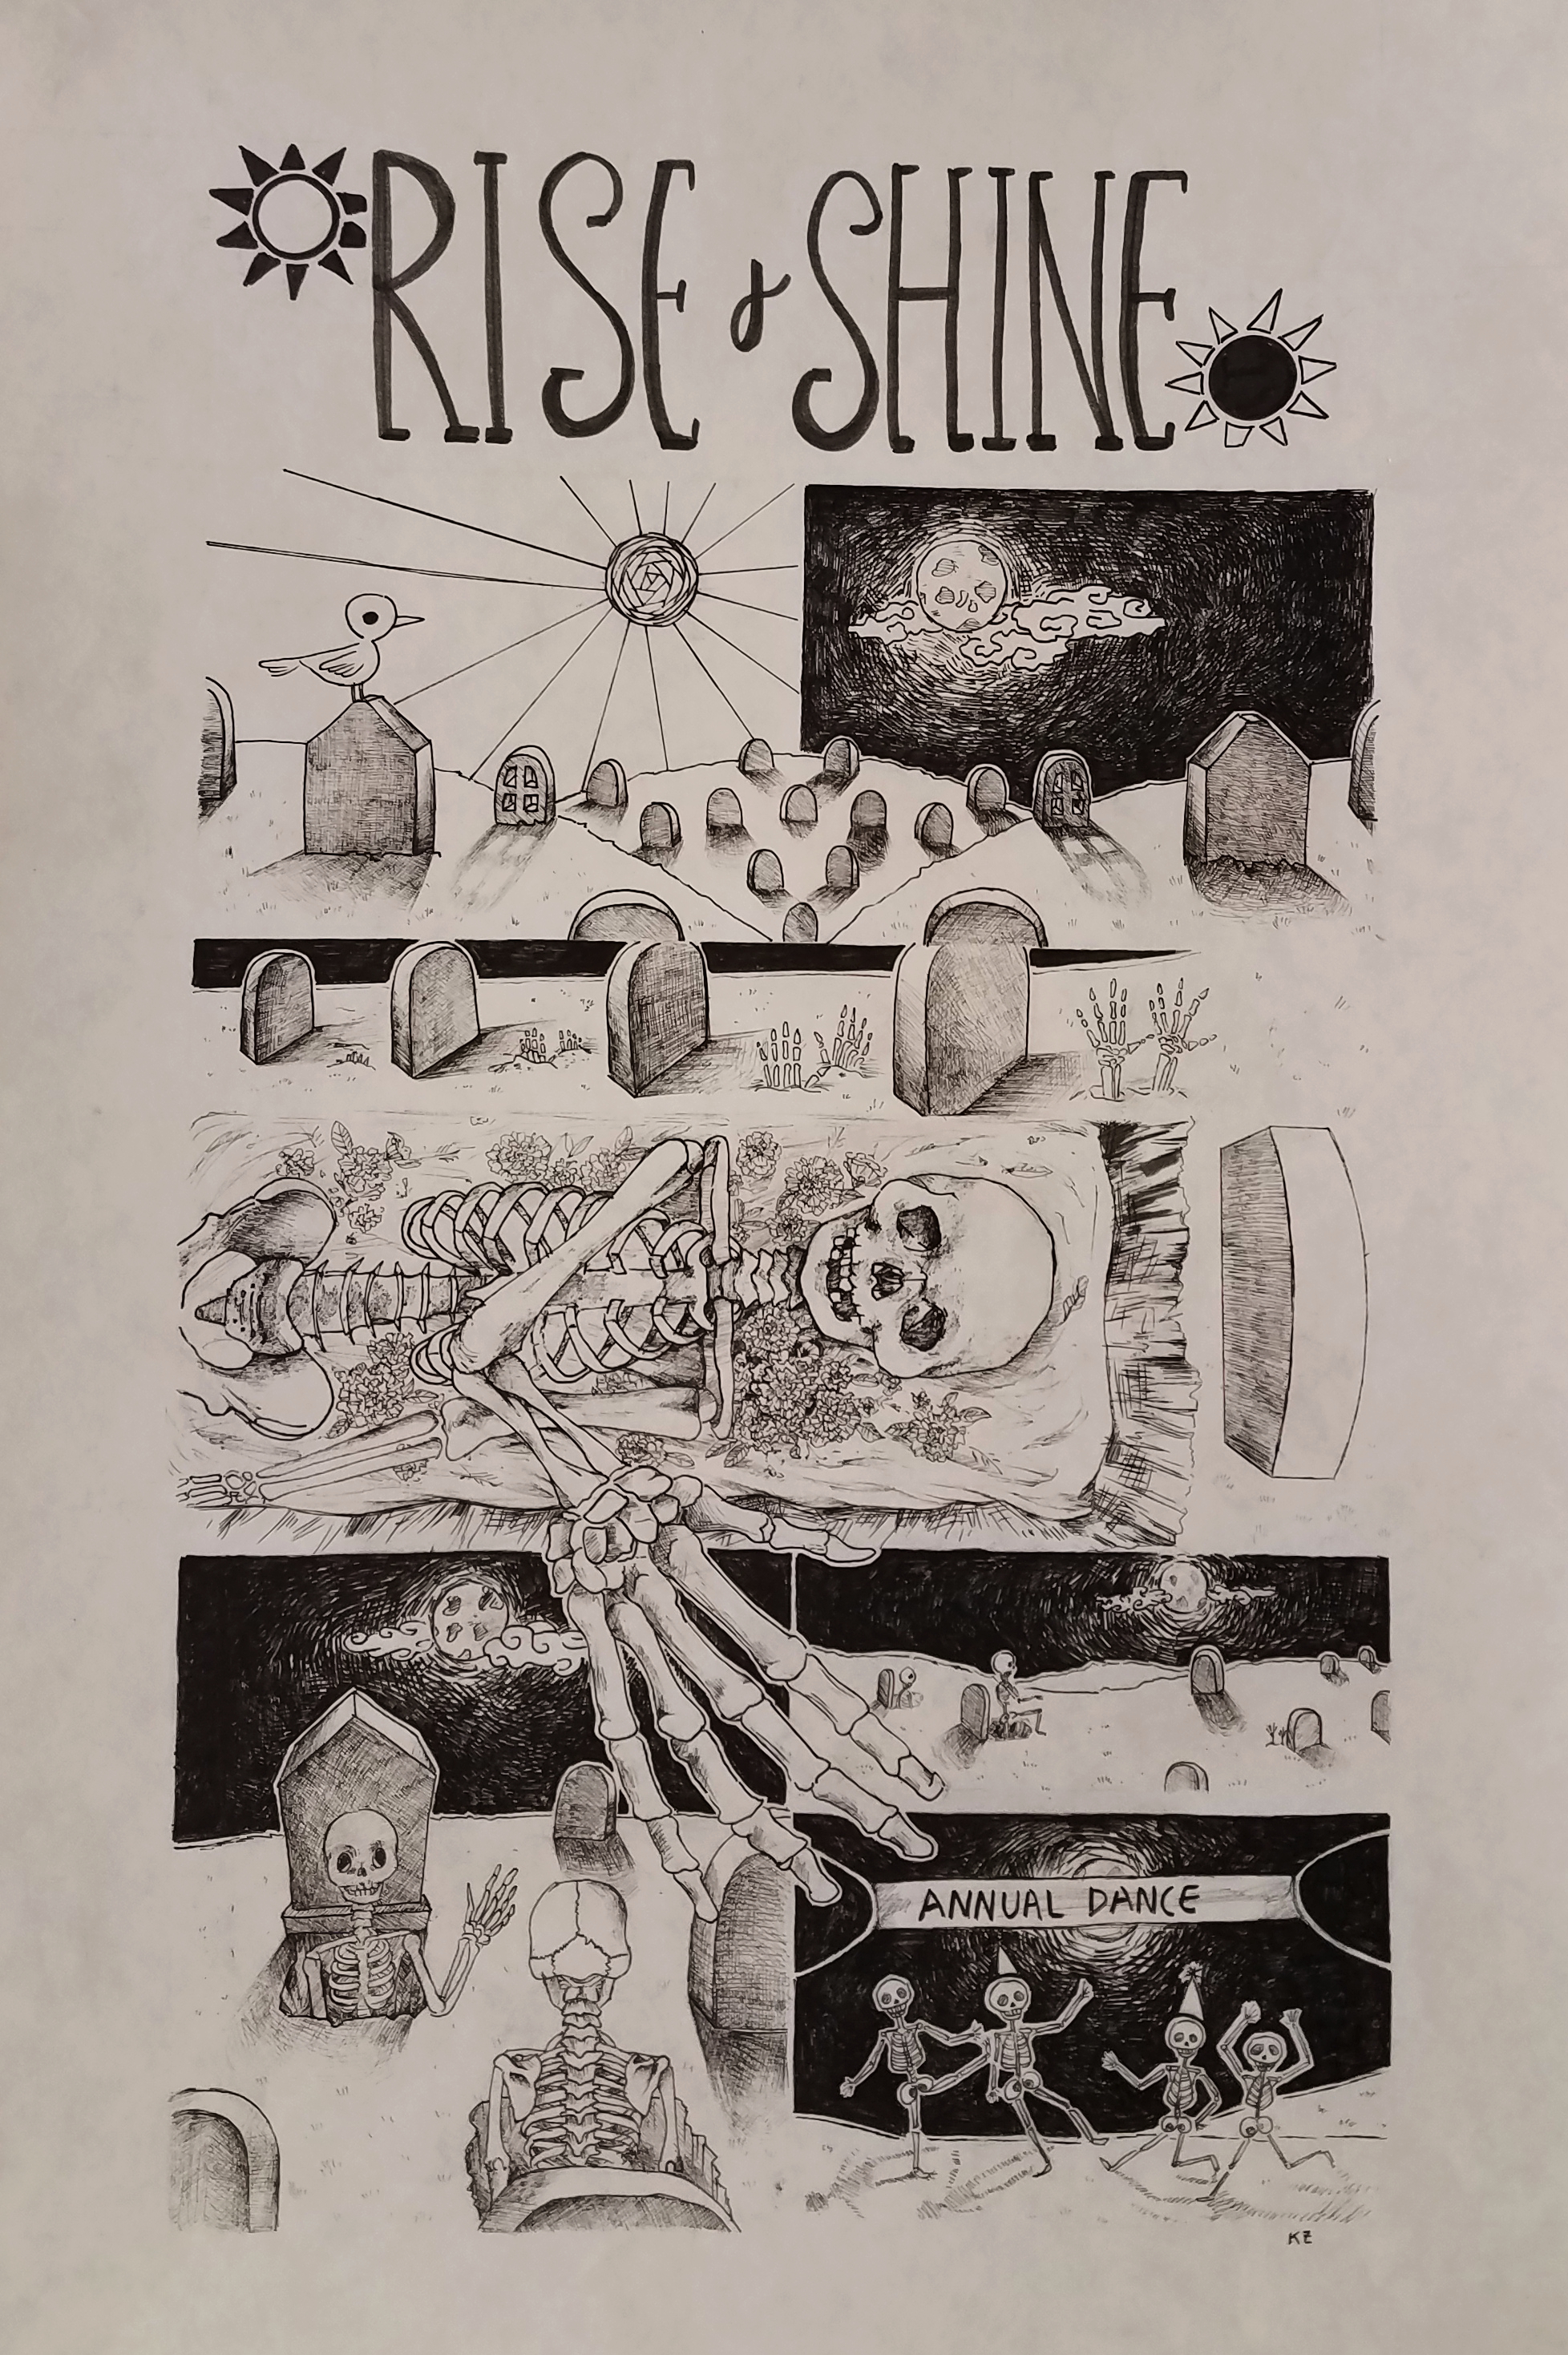 RISE & SHINE
ANNUAL DANCE
KZ